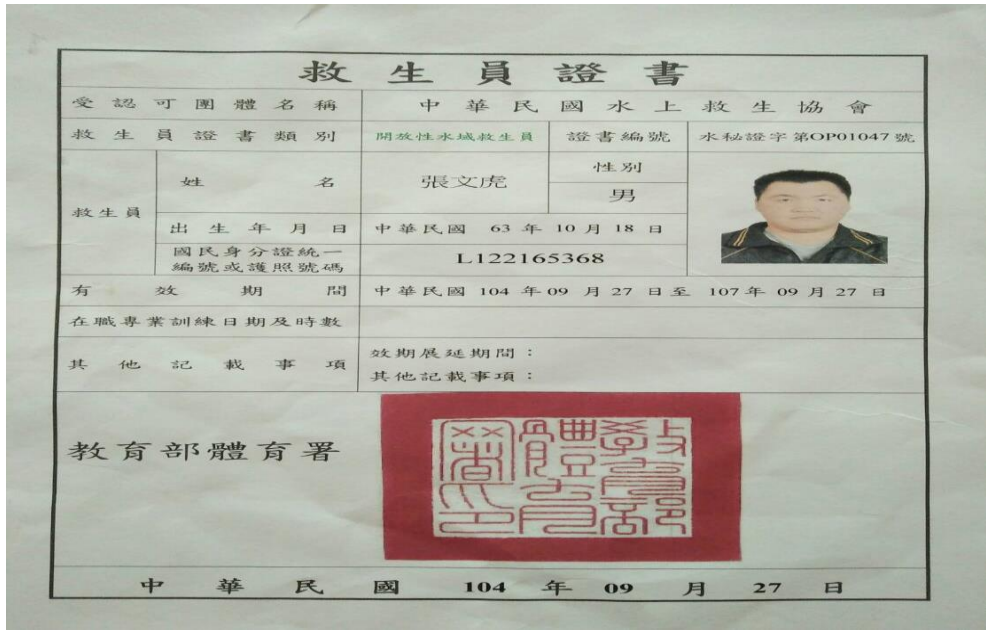 救生員證書
受認可團體名稱 中華民國水上救生協會
救生員證書類別 開放性水域救生員 證書編號 水秘證字第OP01047號
救生員 姓名 張文虎 性別 男
出生年月日 中華民國 63 年 10 月 18 日
國民身分證統一編號或護照號碼 L122165368
有效期間 中華民國 104 年 09 月 27 日至 107 年 09 月 27 日
在職專業訓練日期及時數
其他記載事項 效期展延期間：
其他記載事項：
教育部體育署
教育部體育署印
中華民國 104 年 09 月 27 日